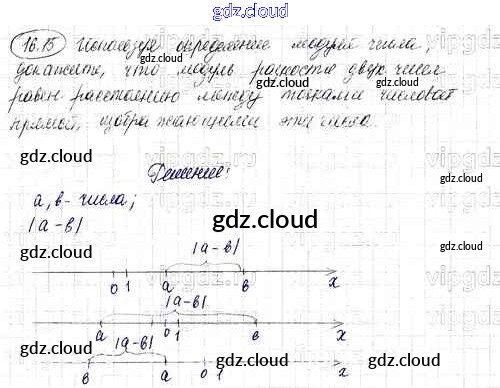 gdz.cloud
16.15 Используя определение модуля числа,
докажите, что модуль разности двух чисел
равен расстоянию между точками числовой
прямой, изображающими эти числа.
gdz.cloud gdz.cloud
gdz.cloud
Решение:
gdz.cloud
a, b - числа;
|a-b|
gdz.cloud
|a-b|
0 1 a b x
gdz.cloud
|a-b|
a 0 1 b x
gdz.cloud
|a-b|
b a 0 1 x
gdz.cloud gdz.cloud gdz.cloud